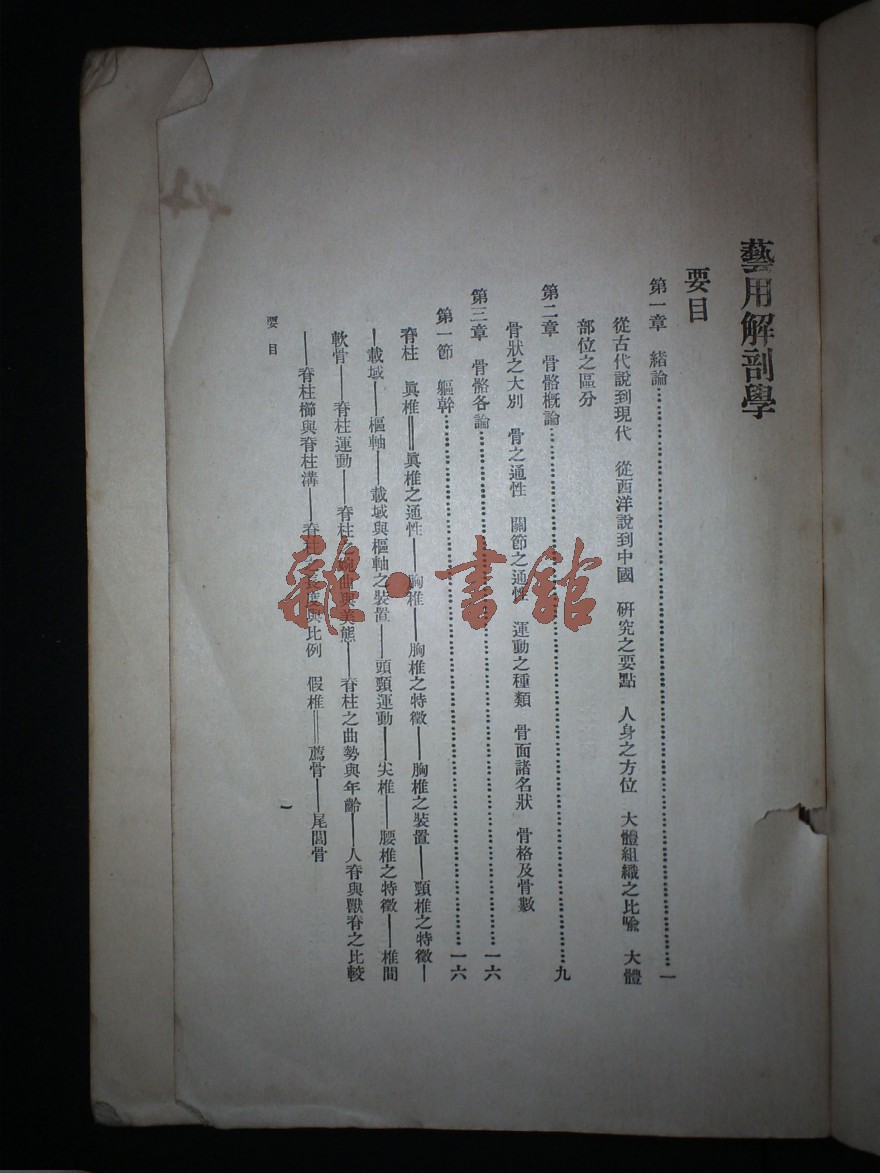 藝用解剖學
要目
第一章　緒論……一
從古代說到現代　從西洋說到中國　研究之要點　人身之方位　大體組織之比喻　大體
部位之區分
第二章　骨骼概論……九
骨狀之大別　骨之通性　關節之通性　運動之種類　骨面諸名狀　骨格及骨數
第三章　骨骼各論……一六
第一節　軀幹……一六
脊柱　眞椎＝＝眞椎之通性——胸椎——胸椎之特徵——胸椎之裝置——頸椎之特徵—
—載域——樞軸——載域與樞軸之裝置——頭頸運動——尖椎——腰椎之特徵——椎間
軟骨——脊柱運動——脊柱之彎曲與美態——脊柱之曲勢與年齡——人脊與獸脊之比較
——脊柱櫛與脊柱溝——脊柱之長度與比例　假椎＝＝薦骨——尾閭骨
要目
一
雜·書館